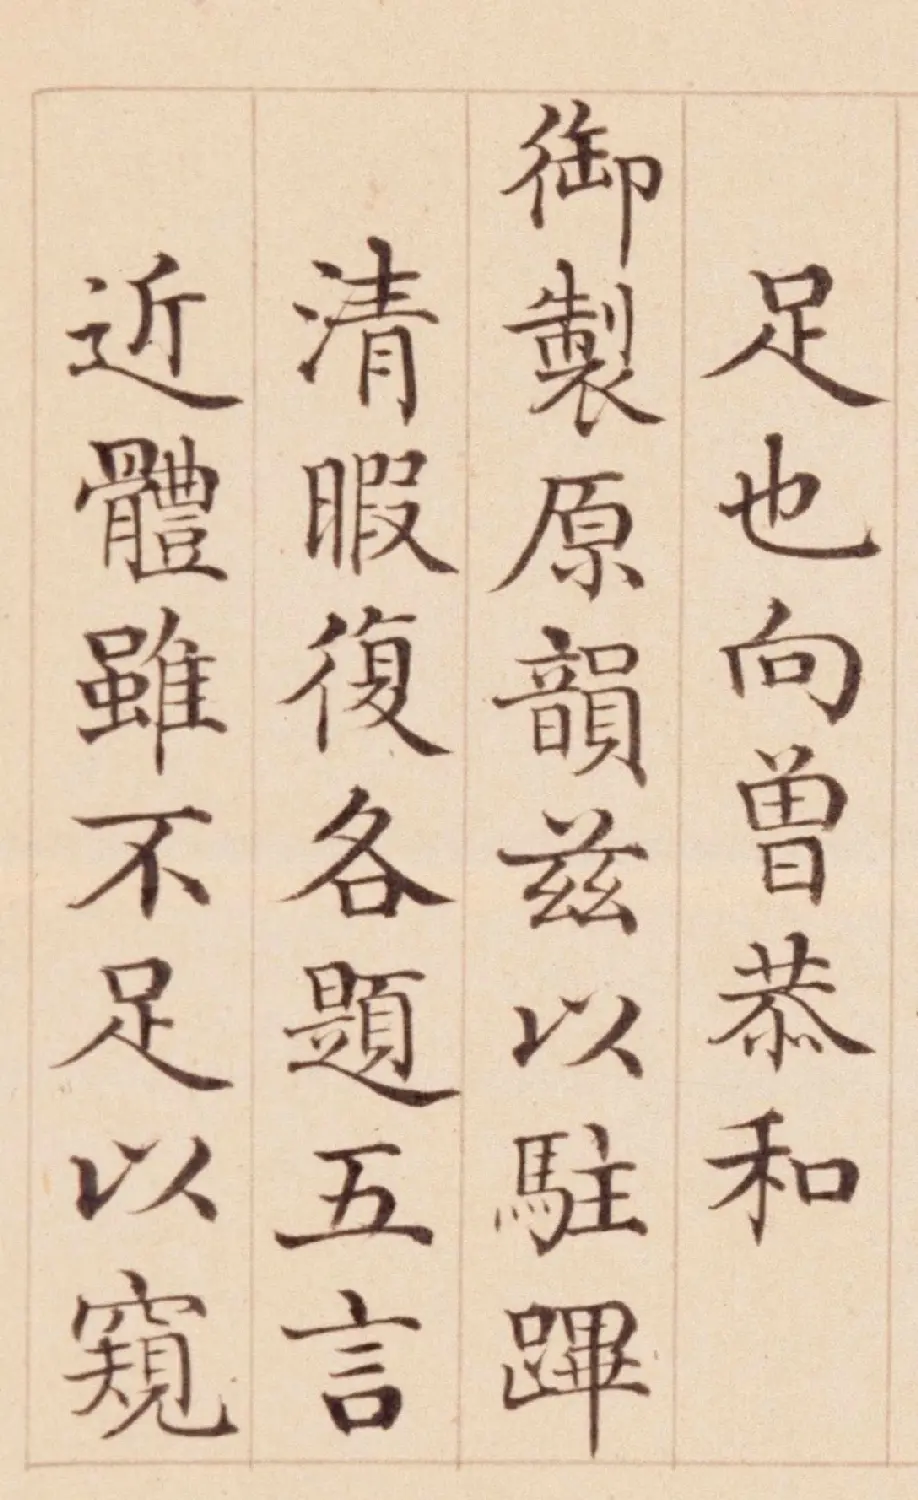 足也向曾恭和
御製原韻兹以駐蹕
清暇復各題五言
近體雖不足以窺